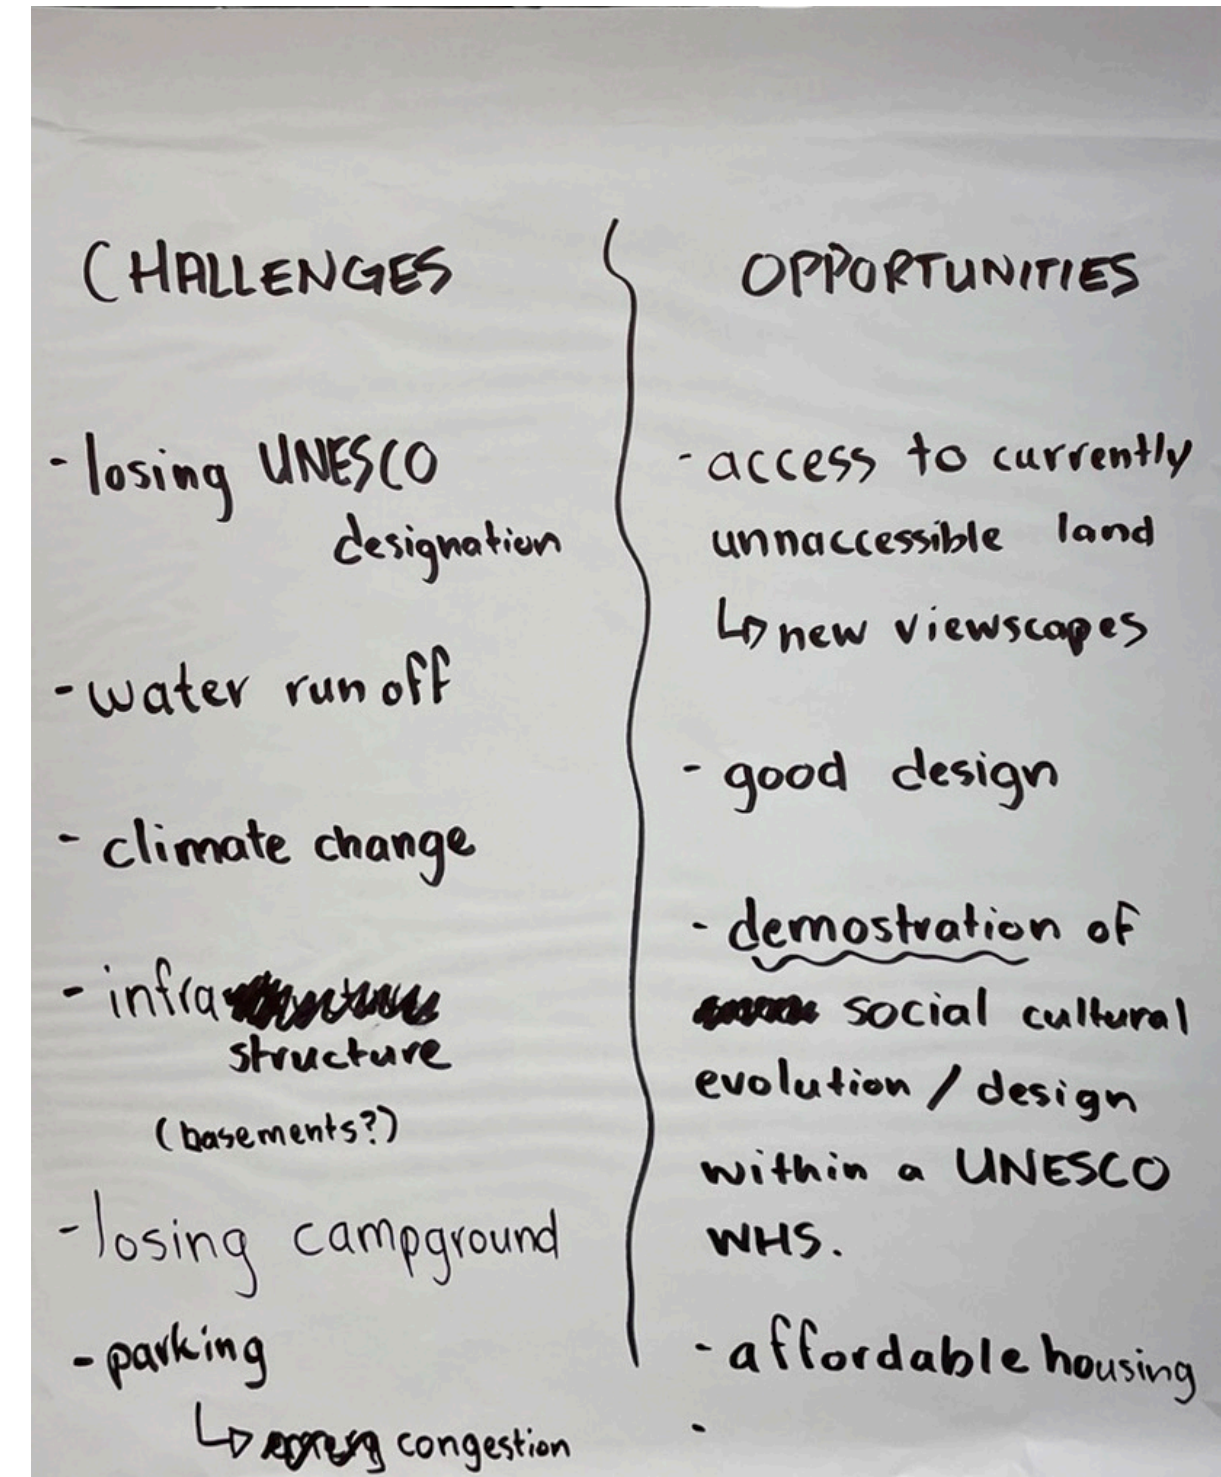 CHALLENGES
- losing UNESCO
designation
- water run off
- climate change
- infra
structure
(basements?)
- losing campground
- parking
↳ congestion
OPPORTUNITIES
- access to currently
unnaccessible land
↳ new viewscapes
- good design
- demostration of
social cultural
evolution / design
within a UNESCO
WHS.
- affordable housing
-